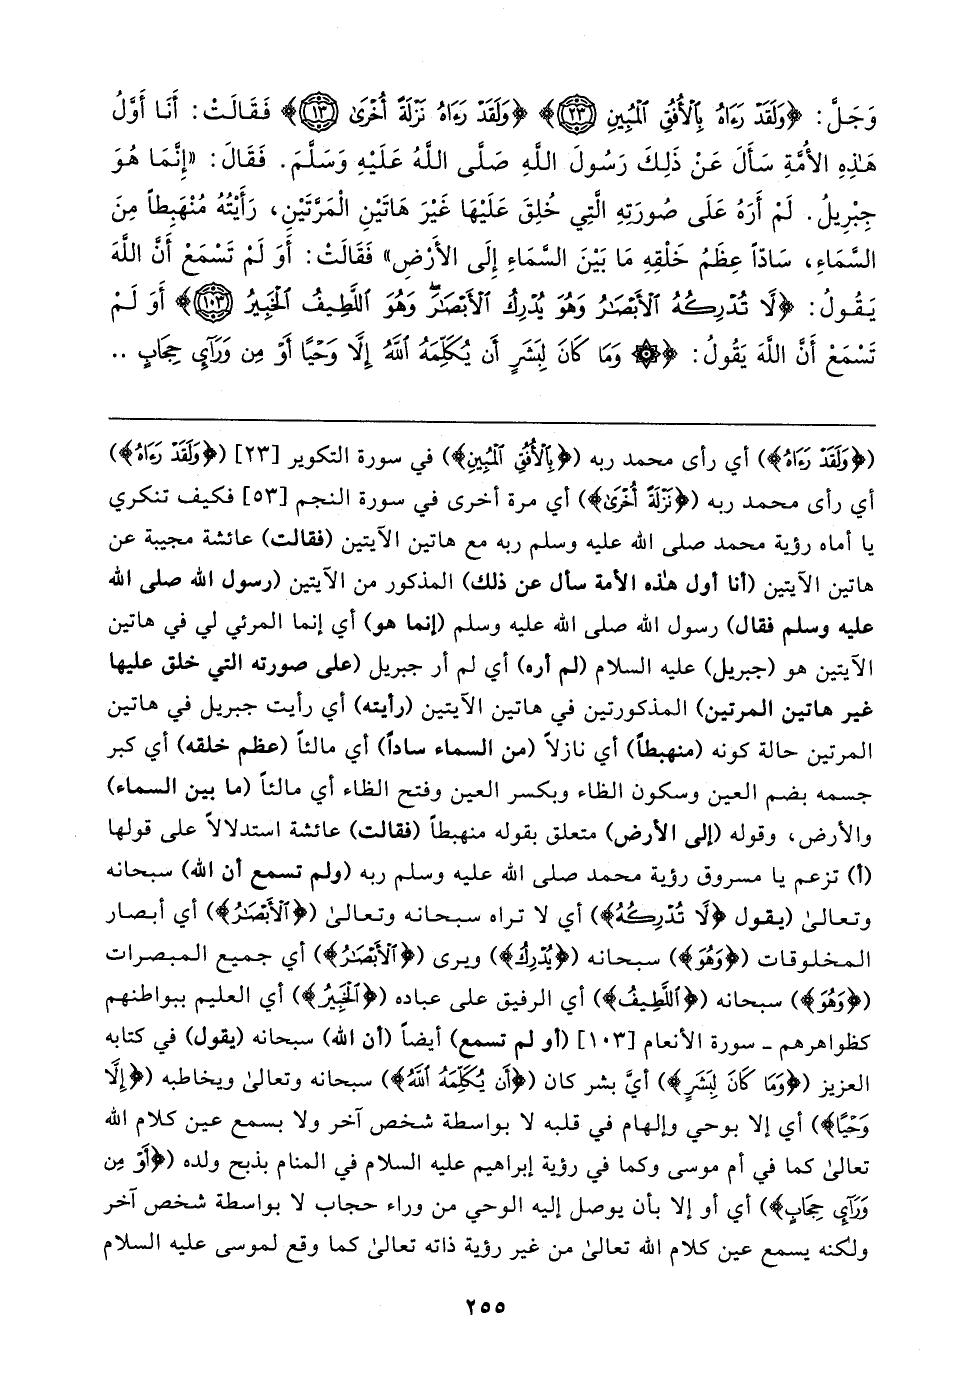 وَجَلَّ: ﴿وَلَقَدْ رَءَاهُ بِٱلْأُفُقِ ٱلْمُبِينِ ۝٢٣﴾ ﴿وَلَقَدْ رَءَاهُ نَزْلَةً أُخْرَىٰ ۝١٣﴾ فَقَالَتْ: أَنَا أَوَّلُ
هَـٰذِهِ الأُمَّةِ سَأَلَ عَنْ ذَلِكَ رَسُولَ اللَّهِ صَلَّى اللَّهُ عَلَيْهِ وَسَلَّمَ. فَقَالَ: «إِنَّمَا هُوَ
جِبْرِيلُ. لَمْ أَرَهُ عَلَى صُورَتِهِ الَّتِي خُلِقَ عَلَيْهَا غَيْرَ هَاتَيْنِ الْمَرَّتَيْنِ، رَأَيْتُهُ مُنْهَبِطاً مِنَ
السَّمَاءِ، سَادّاً عِظَمُ خَلْقِهِ مَا بَيْنَ السَّمَاءِ إِلَى الأَرْضِ» فَقَالَتْ: أَوَ لَمْ تَسْمَعْ أَنَّ اللَّهَ
يَقُولُ: ﴿لَّا تُدْرِكُهُ ٱلْأَبْصَـٰرُ وَهُوَ يُدْرِكُ ٱلْأَبْصَـٰرَ ۖ وَهُوَ ٱللَّطِيفُ ٱلْخَبِيرُ ۝١٠٣﴾ أَوَ لَمْ
تَسْمَعْ أَنَّ اللَّهَ يَقُولُ: ﴿۞ وَمَا كَانَ لِبَشَرٍ أَن يُكَلِّمَهُ ٱللَّهُ إِلَّا وَحْيًا أَوْ مِن وَرَآئِ حِجَابٍ ..
(﴿وَلَقَدْ رَءَاهُ﴾) أي رأى محمد ربه (﴿بِٱلْأُفُقِ ٱلْمُبِينِ﴾) في سورة التكوير [٢٣] (﴿وَلَقَدْ رَءَاهُ﴾)
أي رأى محمد ربه (﴿نَزْلَةً أُخْرَىٰ﴾) أي مرة أخرى في سورة النجم [٥٣] فكيف تنكري
يا أماه رؤية محمد صلى الله عليه وسلم ربه مع هاتين الآيتين (فقالت) عائشة مجيبة عن
هاتين الآيتين (أنا أول هـٰذه الأمة سأل عن ذلك) المذكور من الآيتين (رسول الله صلى الله
عليه وسلم فقال) رسول الله صلى الله عليه وسلم (إنما هو) أي إنما المرئي لي في هاتين
الآيتين هو (جبريل) عليه السلام (لم أره) أي لم أر جبريل (على صورته التي خلق عليها
غير هاتين المرتين) المذكورتين في هاتين الآيتين (رأيته) أي رأيت جبريل في هاتين
المرتين حالة كونه (منهبطاً) أي نازلاً (من السماء ساداً) أي مالئاً (عظم خلقه) أي كبر
جسمه بضم العين وسكون الظاء وبكسر العين وفتح الظاء أي مالئاً (ما بين السماء)
والأرض، وقوله (إلى الأرض) متعلق بقوله منهبطاً (فقالت) عائشة استدلالاً على قولها
(أ) تزعم يا مسروق رؤية محمد صلى الله عليه وسلم ربه (ولم تسمع أن الله) سبحانه
وتعالىٰ (يقول ﴿لَّا تُدْرِكُهُ﴾) أي لا تراه سبحانه وتعالىٰ (﴿ٱلْأَبْصَـٰرُ﴾) أي أبصار
المخلوقات (﴿وَهُوَ﴾) سبحانه (﴿يُدْرِكُ﴾) ويرى (﴿ٱلْأَبْصَـٰرُ﴾) أي جميع المبصرات
(﴿وَهُوَ﴾) سبحانه (﴿ٱللَّطِيفُ﴾) أي الرفيق على عباده (﴿ٱلْخَبِيرُ﴾) أي العليم ببواطنهم
كظواهرهم ـ سورة الأنعام [١٠٣] (أو لم تسمع) أيضاً (أن الله) سبحانه (يقول) في كتابه
العزيز (﴿وَمَا كَانَ لِبَشَرٍ﴾) أيَّ بشر كان (﴿أَن يُكَلِّمَهُ ٱللَّهُ﴾) سبحانه وتعالىٰ ويخاطبه (﴿إِلَّا
وَحْيًا﴾) أي إلا بوحي وإلهام في قلبه لا بواسطة شخص آخر ولا بسمع عين كلام الله
تعالىٰ كما في أم موسى وكما في رؤية إبراهيم عليه السلام في المنام بذبح ولده (﴿أَوْ مِن
وَرَآئِ حِجَابٍ﴾) أي أو إلا بأن يوصل إليه الوحي من وراء حجاب لا بواسطة شخص آخر
ولكنه يسمع عين كلام الله تعالىٰ من غير رؤية ذاته تعالىٰ كما وقع لموسى عليه السلام
٢٥٥